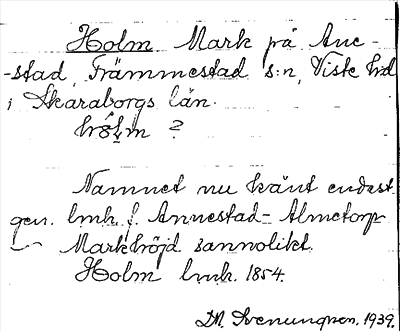 Holm Mark på Ane-
-stad, Främmestad s:n, Viste hd
i Skaraborgs län.
hó̧lm ?
Namnet nu känt endast
gen. lmh. f. Annestad-Almetorp
Markhöjd sannolikt.
Holm lmh. 1854.
DM. Svenungsson. 1939.